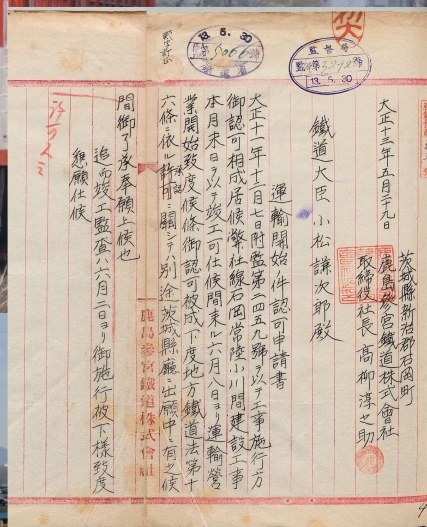 大正十三年五月二十九日
茨城縣新治郡石岡町
鹿島參宮鐵道株式會社
取締役社長 髙柳淳之助
鐵道大臣 小松謙次郎殿
運輸開始ノ件認可申請書
大正十一年十二月七日附監第二四五九號ヲ以テ工事施行方
御認可相成居候弊社線石岡常陸小川間建設工事
本月末日ヲ以テ竣工可仕候間来ル六月八日ヨリ運輸營
業開始致度候條御認可被成下度地方鐵道法第十
六條ニ依ル許可ニ關シテハ別途茨城縣廳ニ出願中ニ有之候
間御了承奉願上候也
追而竣工監査ハ六月二日ヨリ御施行被下様致度
懇願仕候
鹿島參宮鐵道株式會社
13.5.30
監督局
13.5.30